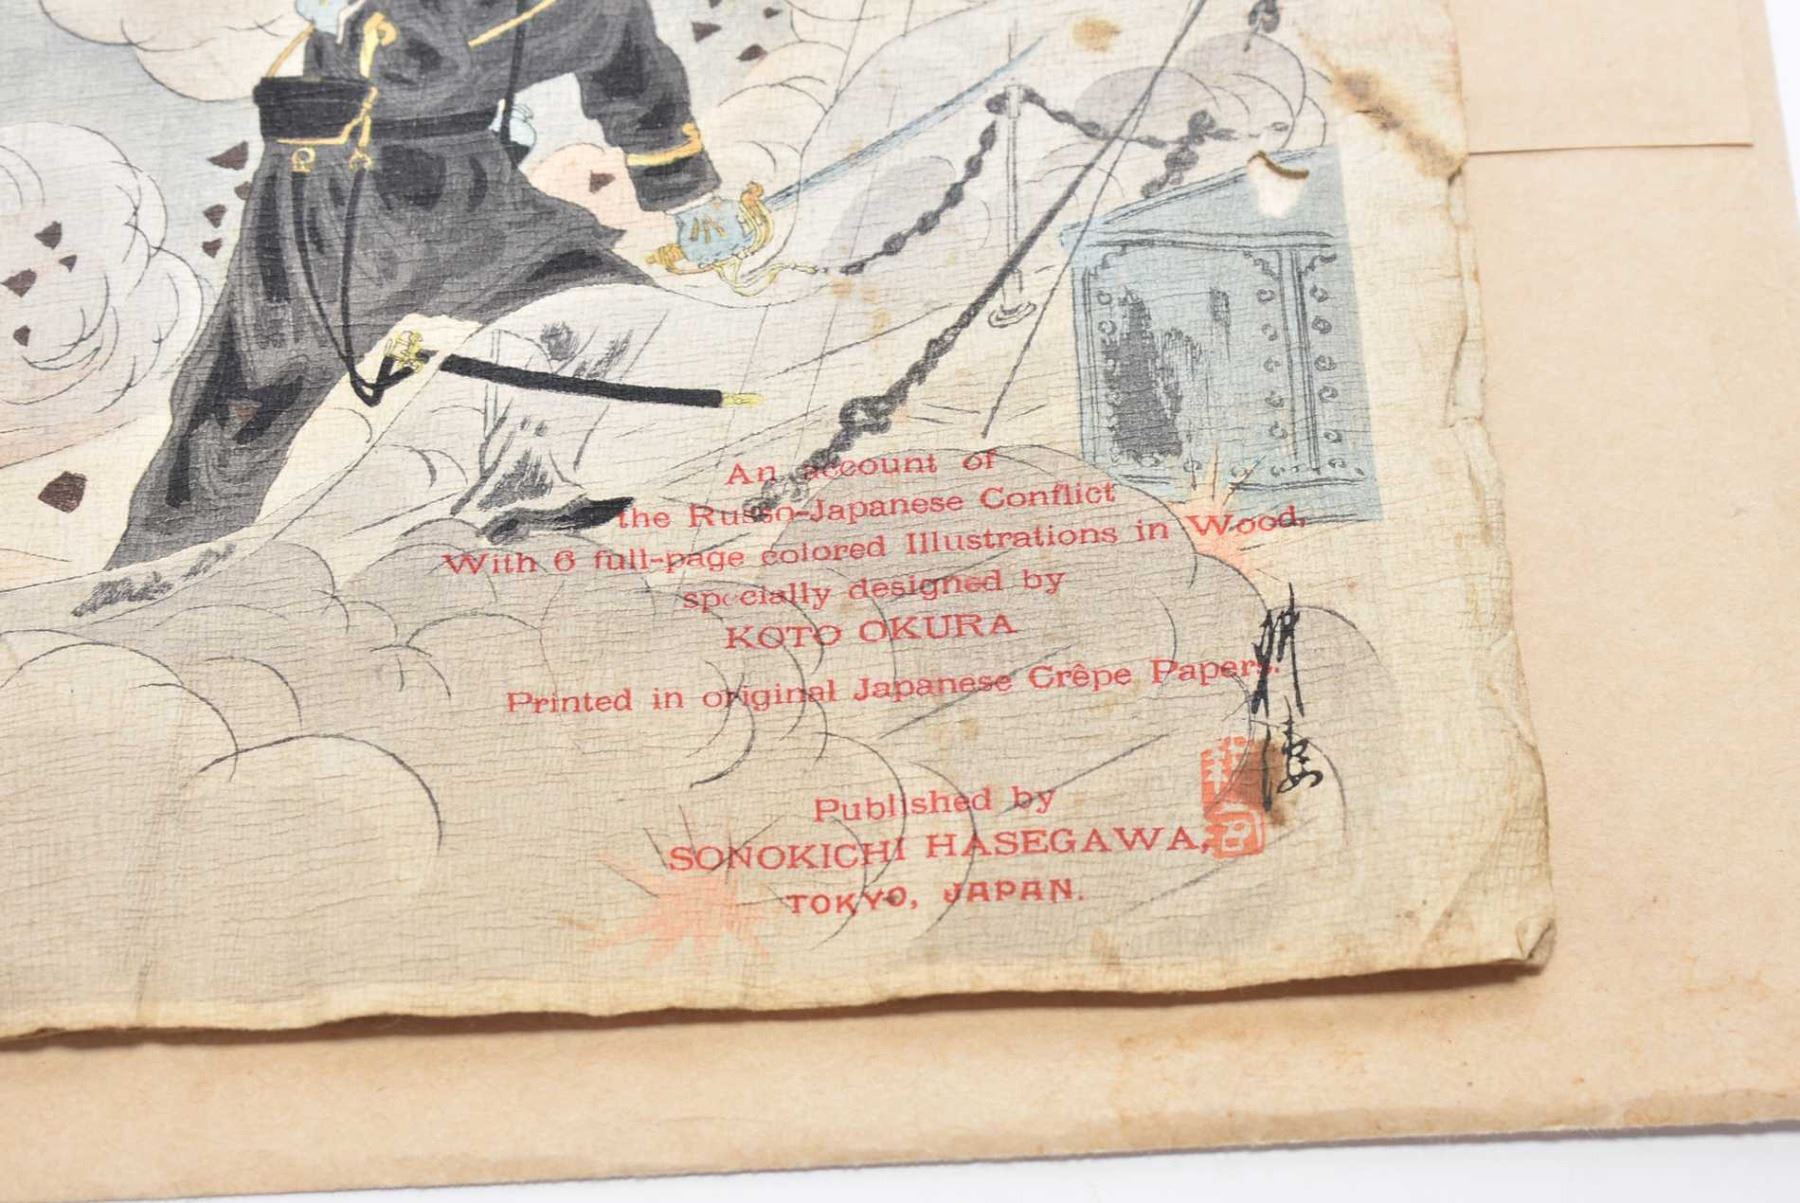 An account of
the Russo-Japanese Conflict
With 6 full-page colored Illustrations in Wood,
specially designed by
KOTO OKURA
Printed in original Japanese Crêpe Papers.
Published by
SONOKICHI HASEGAWA,
TOKYO, JAPAN.